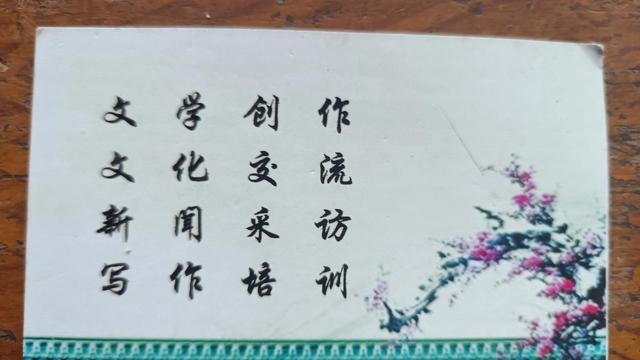 文学创作
文化交流
新闻采访
写作培训